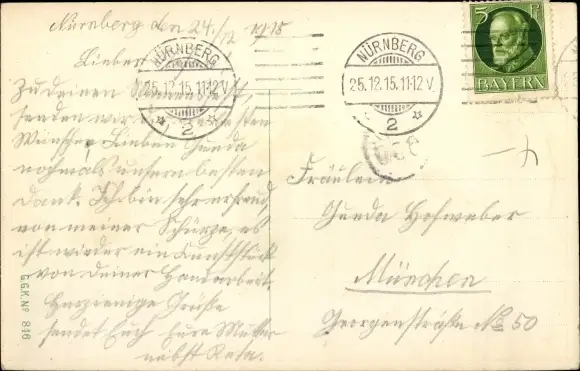 Nürnberg den 24./12 1915
Lieber
Zu deinen
senden wir
Wünsche Lieben Gunda
nochmals unsern besten
Dank. Ich bin sehr erfreud,
von meiner Schürze, es
ist wieder ein Kunststück
von deiner Handarbeit
Herzienige Grüße
sendet Euch Eure Mutter
nebst Reta.
NÜRNBERG
25.12.15.11-12V.
2
NÜRNBERG
25.12.15.11-12 V.
2
5 Pf
BAYERN
Fräulein
Gunda Hofweber
München
Georgenstraße No 50
G.G.K.No 816